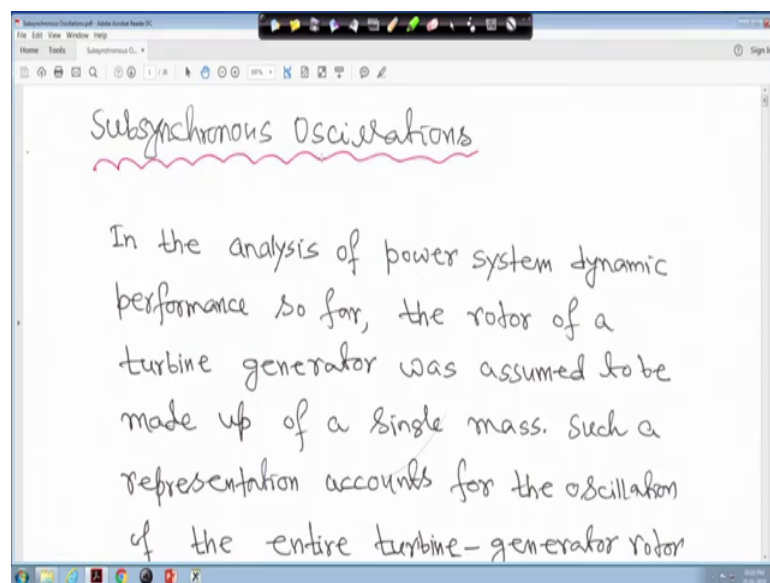 Subsynchronous Oscillations.pdf - Adobe Acrobat Reader DC
File Edit View Window Help
Home Tools Subsynchronous O... ×
Sign In
Subsynchronous Oscillations
In the analysis of power system dynamic
performance so far, the rotor of a
turbine generator was assumed to be
made up of a single mass. Such a
representation accounts for the oscillation
of the entire turbine-generator rotor